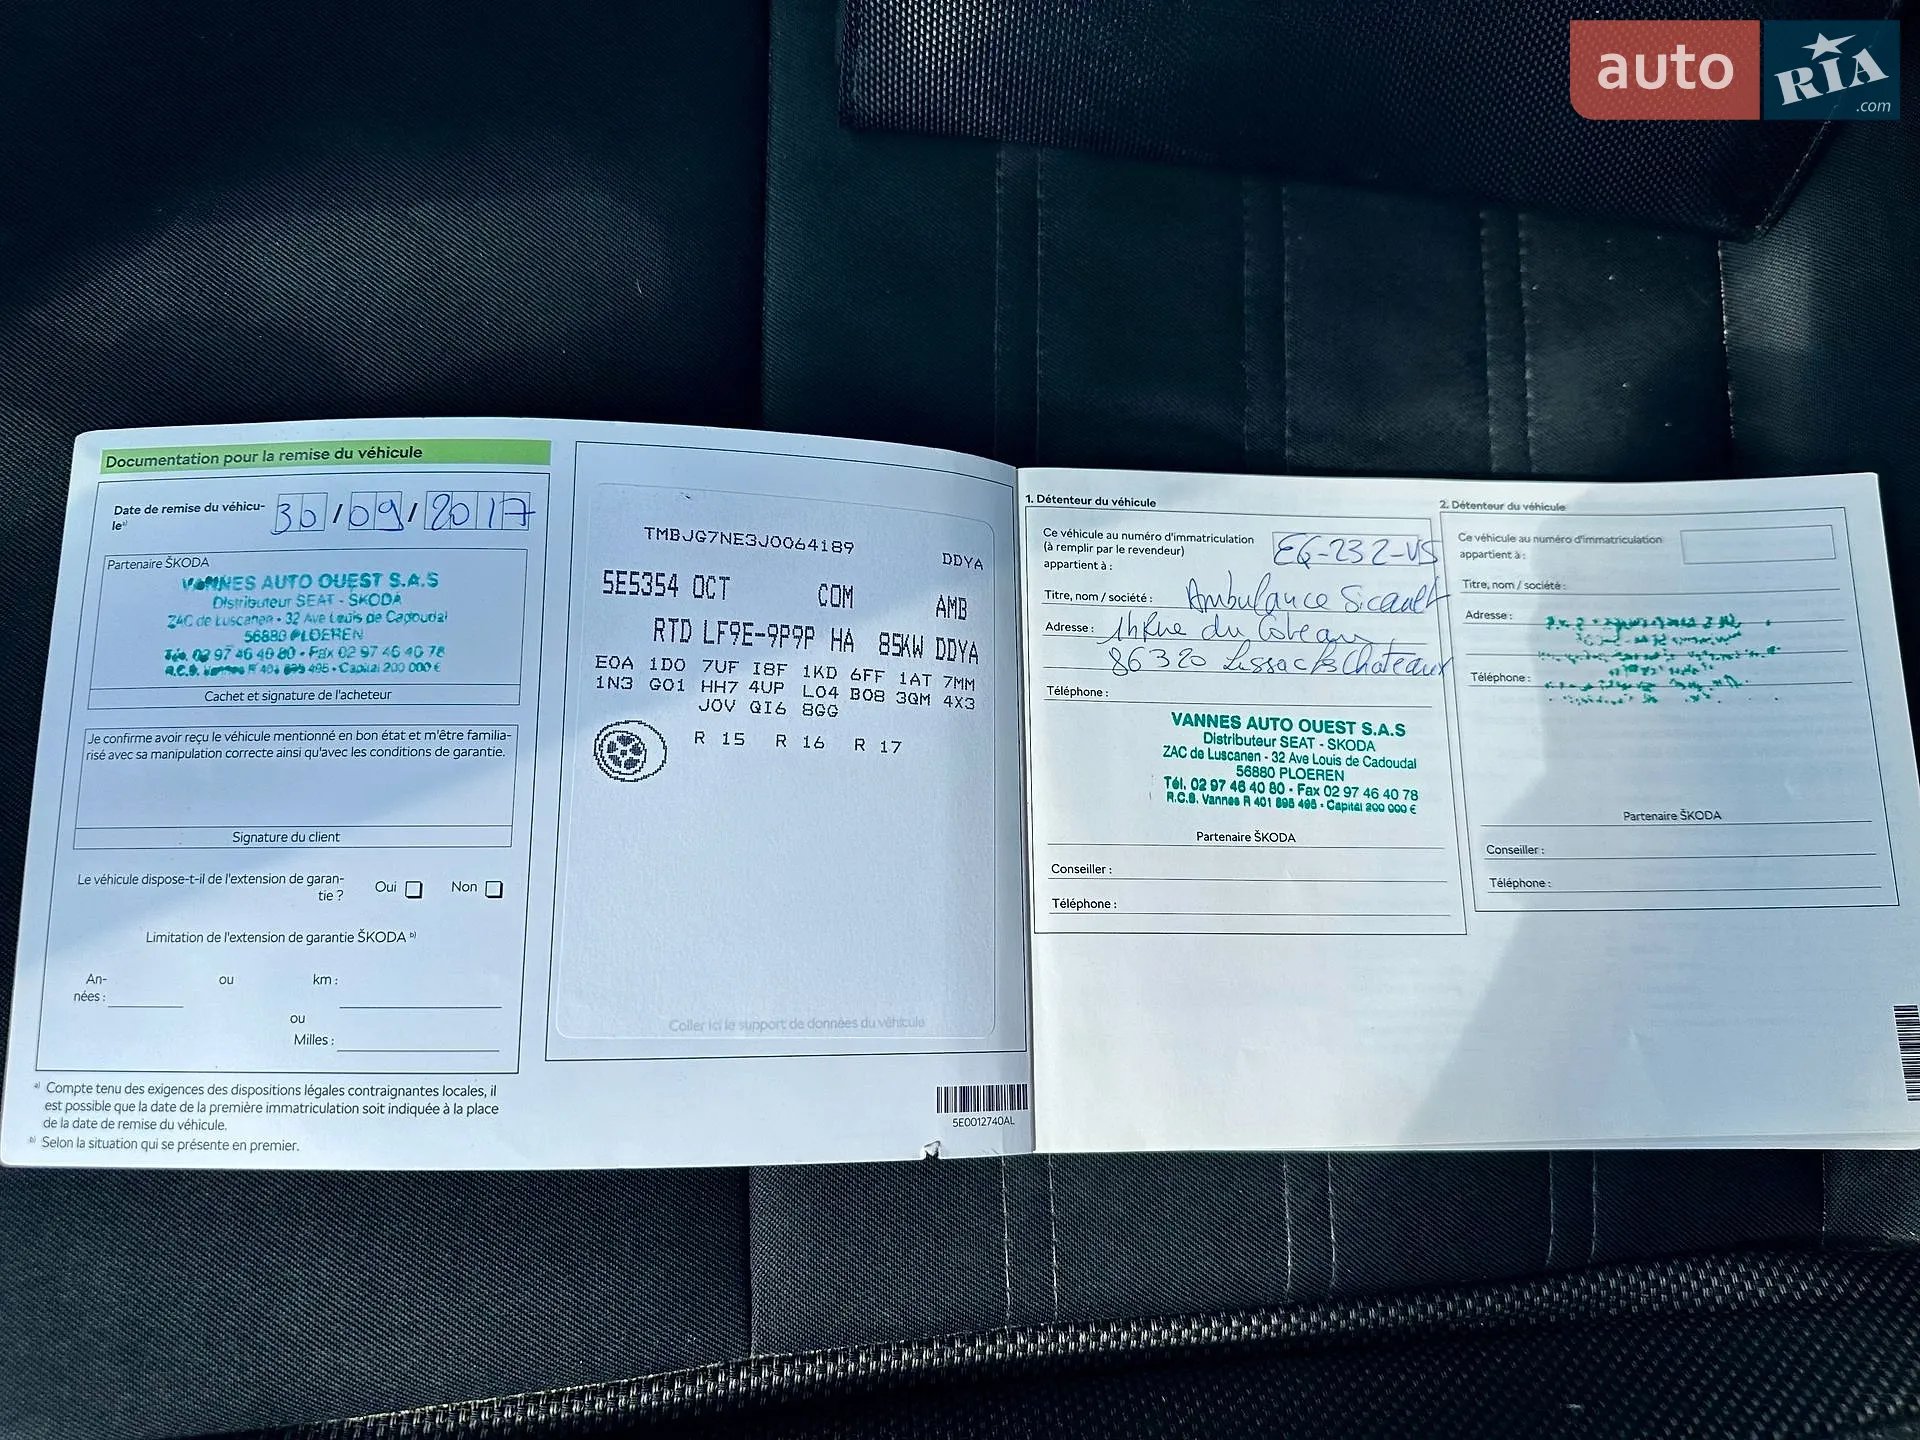 auto RIA .com
Documentation pour la remise du véhicule
Date de remise du véhicu-
le a)
30/09/2017
Partenaire ŠKODA
VANNES AUTO OUEST S.A.S
Distributeur SEAT - SKODA
ZAC de Luscanen - 32 Ave Louis de Cadoudal
56880 PLOEREN
Tél. 02 97 46 40 80 - Fax 02 97 46 40 78
R.C.S. Vannes R 401 895 495 - Capital 200 000 €
Cachet et signature de l'acheteur
Je confirme avoir reçu le véhicule mentionné en bon état et m'être familia-
risé avec sa manipulation correcte ainsi qu'avec les conditions de garantie.
Signature du client
Le véhicule dispose-t-il de l'extension de garan-
tie ?
Oui
Non
Limitation de l'extension de garantie ŠKODA b)
An-
nées :
ou
km :
ou
Milles :
a) Compte tenu des exigences des dispositions légales contraignantes locales, il
est possible que la date de la première immatriculation soit indiquée à la place
de la date de remise du véhicule.
b) Selon la situation qui se présente en premier.
TMBJG7NE3J0064189
DDYA
5E5354 OCT COM AMB
RTD LF9E-9P9P HA 85KW DDYA
E0A 1D0 7UF I8F 1KD 6FF 1AT 7MM
1N3 G01 HH7 4UP L04 B08 3QM 4X3
J0V QI6 8GG
R 15 R 16 R 17
Coller ici le support de données du véhicule
5E0012740AL
1. Détenteur du véhicule
Ce véhicule au numéro d'immatriculation
(à remplir par le revendeur)
appartient à :
EQ-232-VS
Titre, nom / société : Ambulance Sicault
Adresse : 14 Rue du Coteau
86320 Lussac les Chateaux
Téléphone :
VANNES AUTO OUEST S.A.S
Distributeur SEAT - SKODA
ZAC de Luscanen - 32 Ave Louis de Cadoudal
56880 PLOEREN
Tél. 02 97 46 40 80 - Fax 02 97 46 40 78
R.C.S. Vannes R 401 895 495 - Capital 200 000 €
Partenaire ŠKODA
Conseiller :
Téléphone :
2. Détenteur du véhicule
Ce véhicule au numéro d'immatriculation
appartient à :
Titre, nom / société :
Adresse :
Téléphone :
Partenaire ŠKODA
Conseiller :
Téléphone :